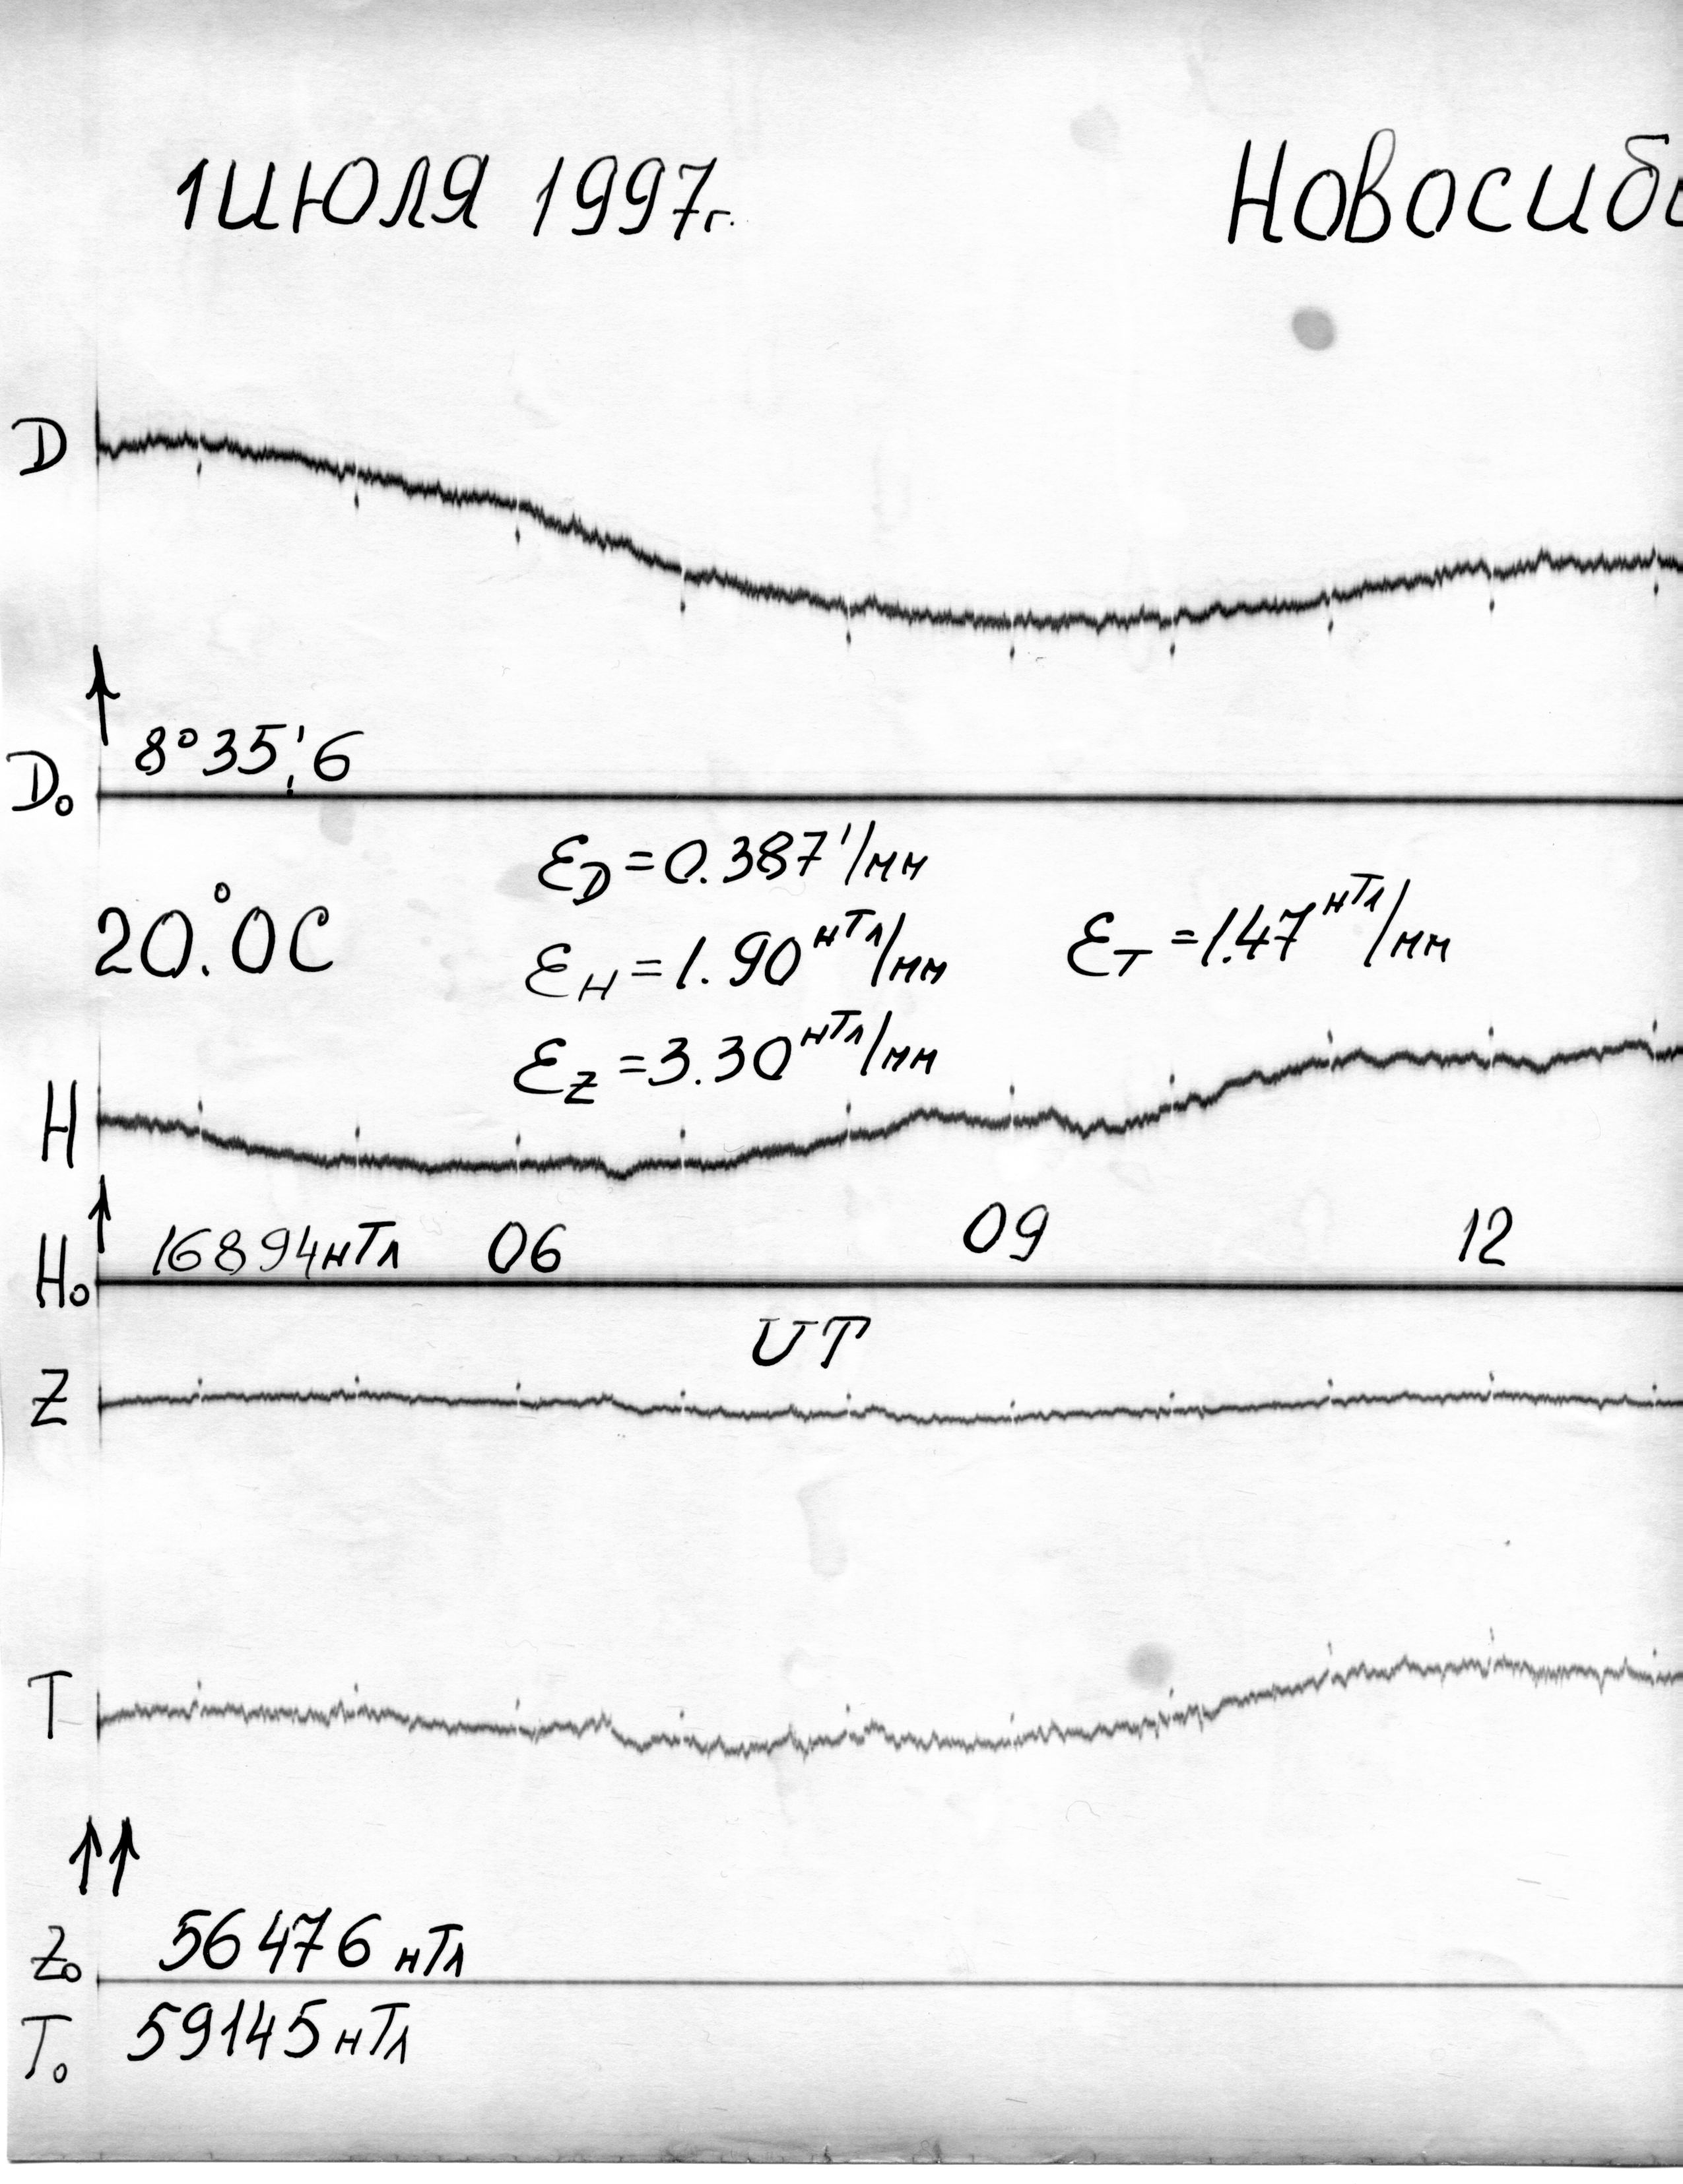 1 ИЮЛЯ 1997г. Новосиб
D
8°35,'6
D₀
ε_D = 0.387'/мм
20.°0С
ε_H = 1.90 нТл/мм ε_T = 1.47 нТл/мм
ε_Z = 3.30 нТл/мм
H
16894нТл 06 09 12
H₀
UT
Z
T
56476 нТл
Z₀
59145нТл
T₀